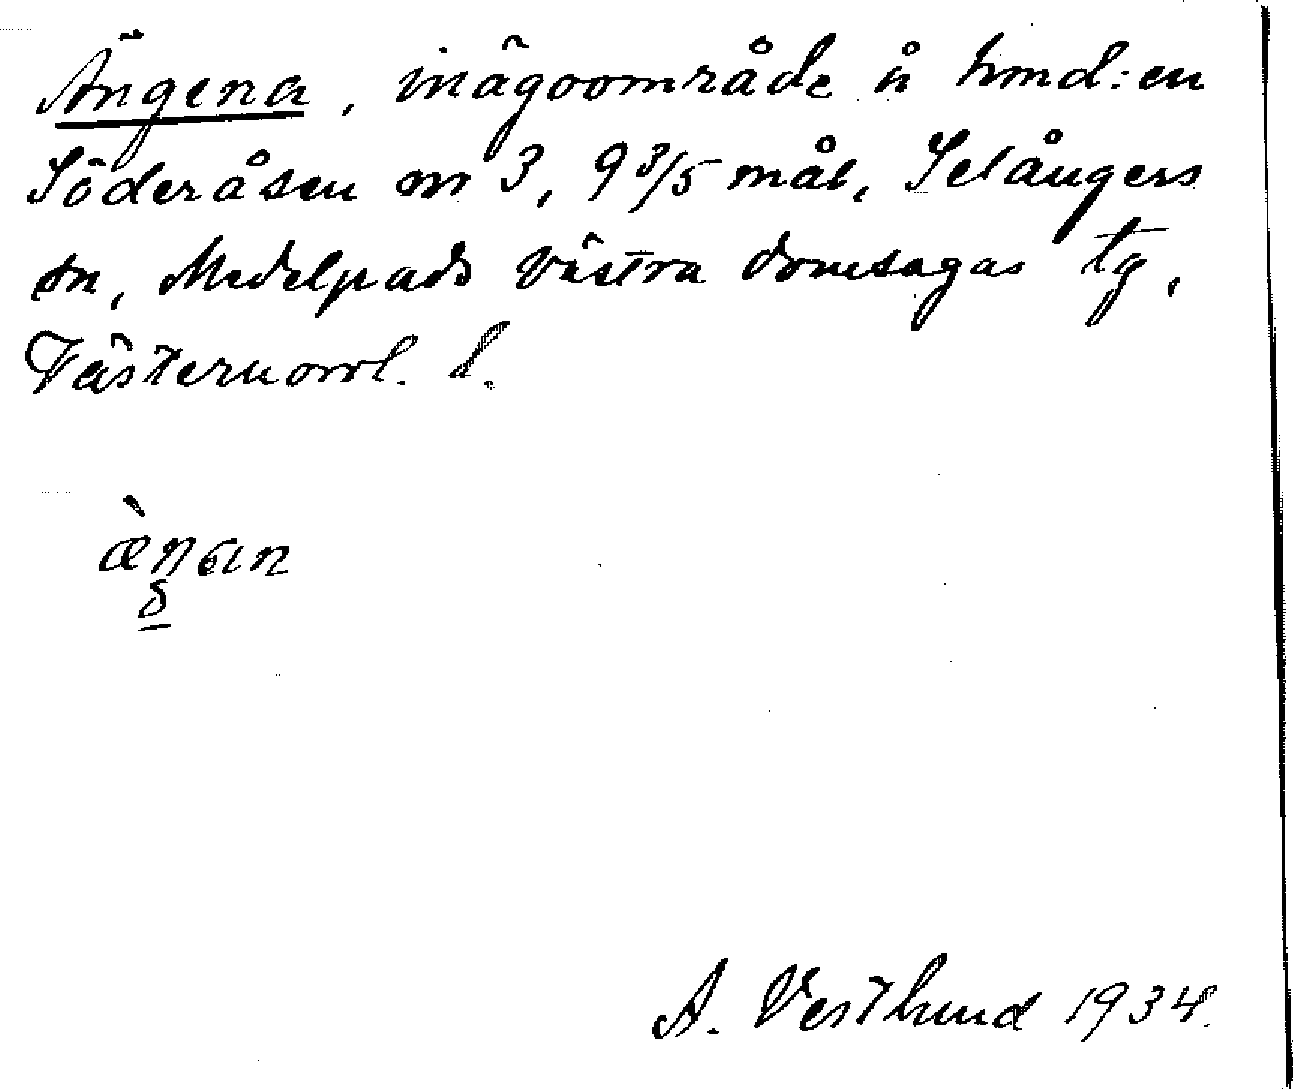 Ängena, inägoområde å hmd:en
Söderåsen nr 3, 9 3/5 mål, Selångers
sn, Medelpads västra domsagas tg,
Västernorrl. l.
A. Vestlund 1934.